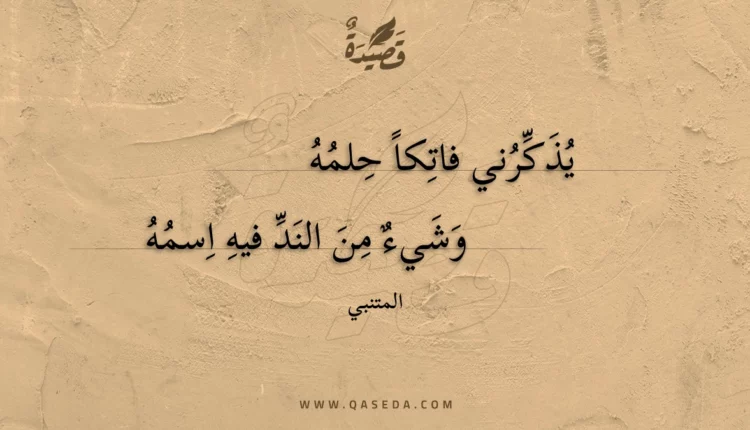 قَصِيدَةٌ
يُذَكِّرُني فاتِكاً حِلمُهُ
وَشَيءٌ مِنَ النَدِّ فيهِ اِسمُهُ
المتنبي
WWW.QASEDA.COM